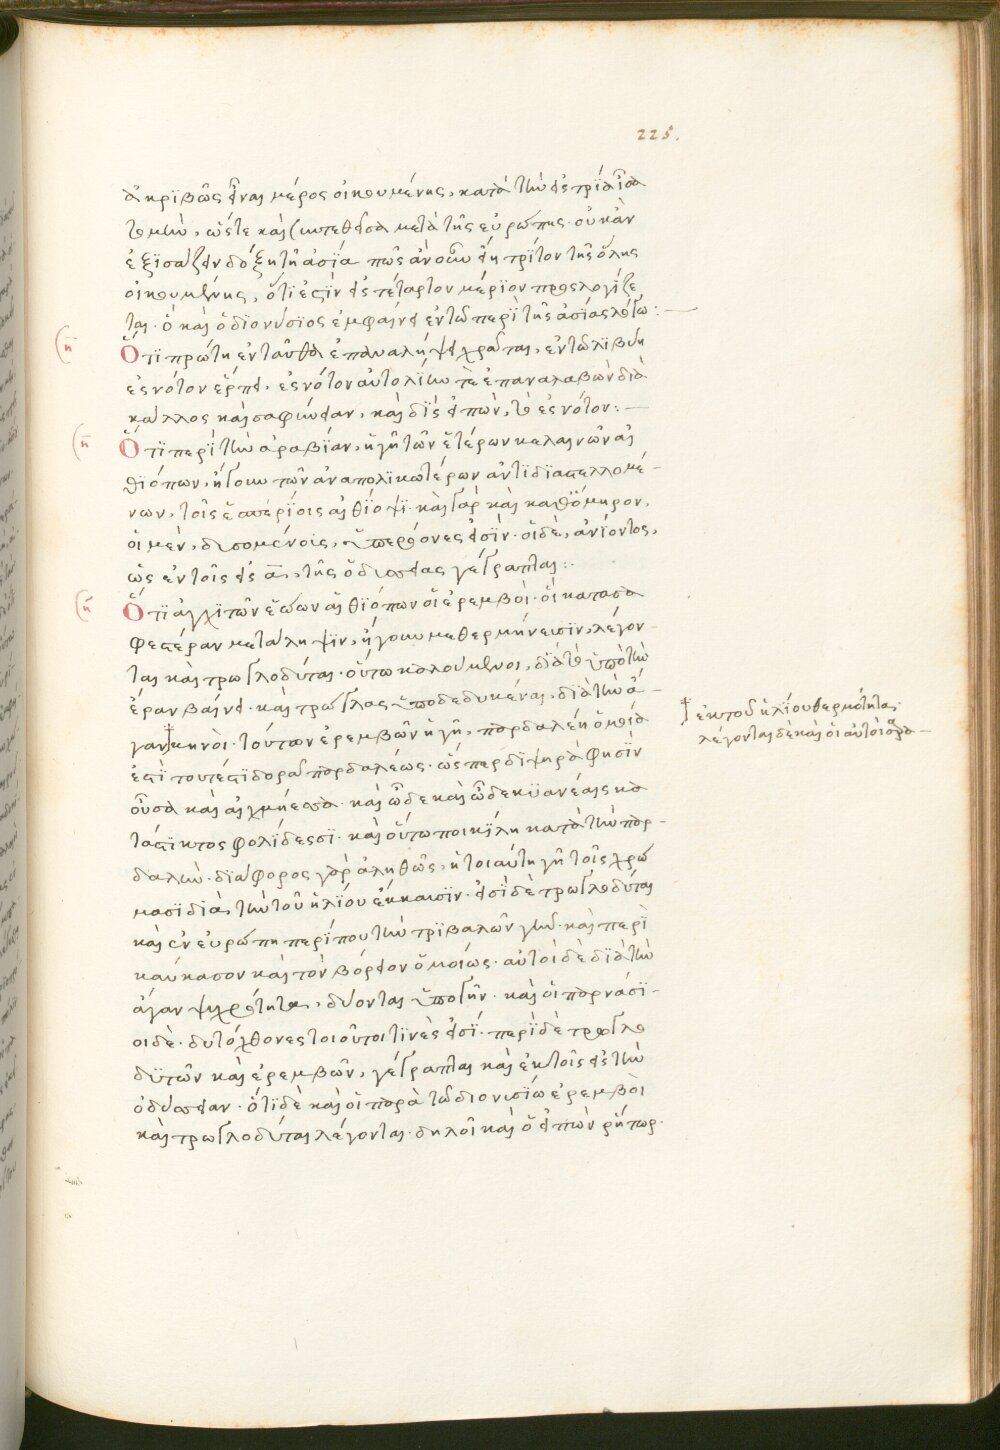 225.
ἀκριβῶς εἶναι μέρος οἰκουμένης, κατὰ τὴν εἰς τρία ἴσα
τομὴν, ὥστε καὶ συντεθεῖσα μετὰ τῆς εὐρώπης· οὐκ ἂν
ἐξισάζειν δόξῃ τῇ ἀσία πῶς ἂν οὖν εἴη τρίτον τῆς ὅλης
οἰκουμένης, ὅτι ἐστὶν εἰς τέταρτον μέριον προσλογίζε
ται· ὁ καὶ ὁ διονύσιος ἐμφαίνει ἐν τῶ περὶ τῆς ἀσίας λόγω:
Ὅτι πρώτη ἐνταῦθα ἐπαναλήψει χρᾶται, ἐν τῶ λιβύη
ἐς νότον ἕρπει, ἐς νότον αὐτολίην τὲ ἐπαναλαβὼν διὰ
κάλλος καὶ σαφήνειαν, καὶ δὶς εἰπὼν, τὸ ἐς νότον:
Ὅτι περὶ τὴν ἀραβίαν, ἡ γῆ τῶν ἑτέρων κελαινῶν αἰ
θιόπων, ἤγουν τῶν ἀναπολικωτέρων ἀντιδιαστελλομέ-
νων, τοῖς ἑσπερίοις αἰθίοψι· καὶ γὰρ καὶ καθ' ὅμηρον,
οἱ μὲν, δυσομένοις, ὑπερθόνες εἰσίν· οἱ δὲ, ἀνιόντος,
ὡς ἐν τοῖς εἰς α, τῆς ὀδυσσείας γέγραπται:
Ὅτι ἀγχι τῶν ἑώων αἰθιόπων οἱ ἐρεμβοί· οἱ κατὰ σα
φεστέραν μετάληψιν, ἤγουν μεθερμήνεισιν, λέγον-
ται καὶ τρωγλοδύται· οὕτω καλούμενοι, διὰ τὸ ὑπὸ τὴν
ἔραν βαίνει· καὶ τρώγλας ὑποδεδυκέναι, διὰ τὴν ἄ-
γαν κηνοι· τούτων ἐρεμβῶν ἡ γῆ, παρδαλέη ὁμοία
ἐστὶ τουτέστι δορᾶ παρδαλέως· ὥσπερ διψηρὰ φησὶν
οὖσα καὶ αἰχμήεσσα· καὶ ὧδε καὶ ὧδε κυανέαις κα
τάστικτος φολίδεσσι· καὶ οὕτω ποικίλη κατὰ τὴν παρ-
δαλὴν· διάφορος γὰρ ἀληθῶς, ἡ τοιαύτη γῆ τοῖς χρώ
μασι διὰ τὴν τοῦ ἡλίου ἔκκαυσιν· εἰσὶ δὲ τρωγλοδύται
καὶ ἐν εὐρώπη περί που τὴν τριβαλῶν γῆν· καὶ περὶ
καύκασον καὶ τὸν βόρειον ὁμοίως· αὐτοὶ δὲ διὰ τὴν
ἄγαν ψυχρότητα, δύονται ὑπὸ γῆν· καὶ οἱ παρνάσι-
οι δὲ· αὐτόχθονες τοιοῦτοι τινὲς εἰσί· περὶ δὲ τρωγλο
δυτῶν καὶ ἐρεμβῶν, γέγραπται καὶ ἐκ τοῖς εἰς τὴν
ὀδύσσειαν· ὅτι δὲ καὶ οἱ παρὰ τῶ διονισίω ἐρεμβοὶ
καὶ τρωγλοδύται λέγονται· δηλοῖ καὶ ὁ εἰπὼν ῥήτωρ·
ἐκ τοῦ ἡλίου θερμότητα·
λέγονται δὲ καὶ οἱ αὐτοὶ